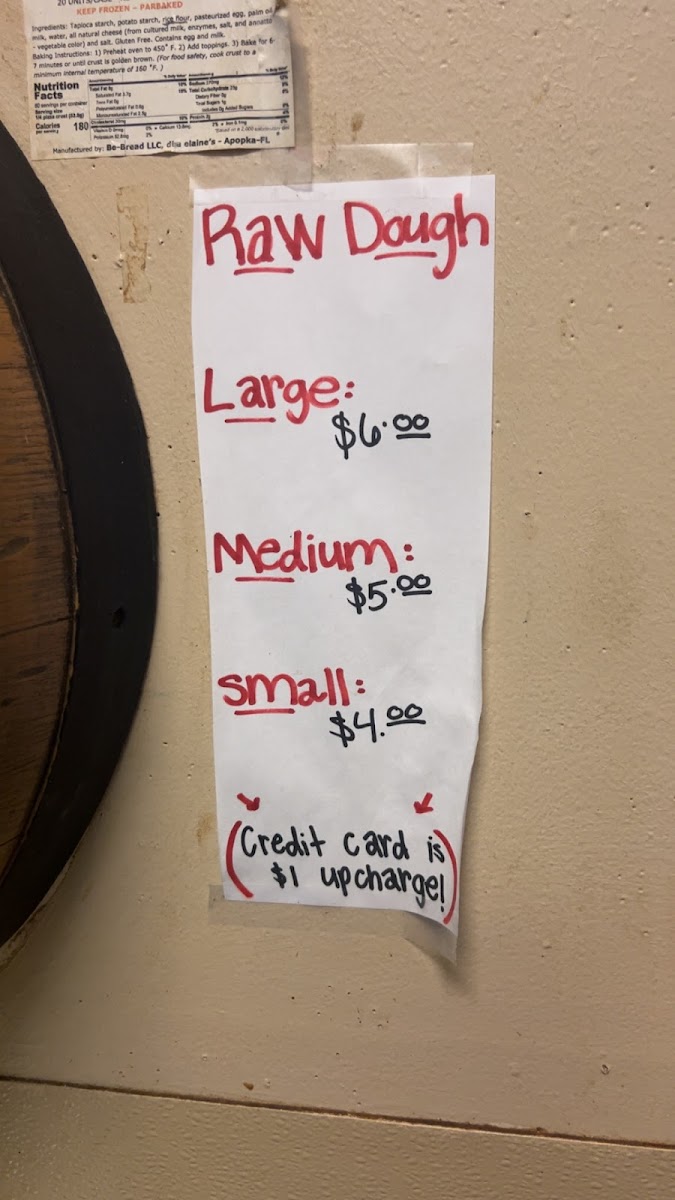 KEEP FROZEN - PARBAKED
Ingredients: Tapioca starch, potato starch, rice flour, pasteurized egg, palm oil,
milk, water, all natural cheese (from cultured milk, enzymes, salt, and annatto
- vegetable color) and salt. Gluten Free. Contains egg and milk.
Baking Instructions: 1) Preheat oven to 450° F. 2) Add toppings. 3) Bake for 6-
7 minutes or until crust is golden brown. (For food safety, cook crust to a
minimum internal temperature of 160 °F. )
Nutrition
Facts
Serving size
Calories 180
Manufactured by: Be-Bread LLC, dba elaine's - Apopka-FL
Raw Dough
Large:
$6.00
Medium:
$5.00
small:
$4.00
(Credit card is
$1 upcharge!)